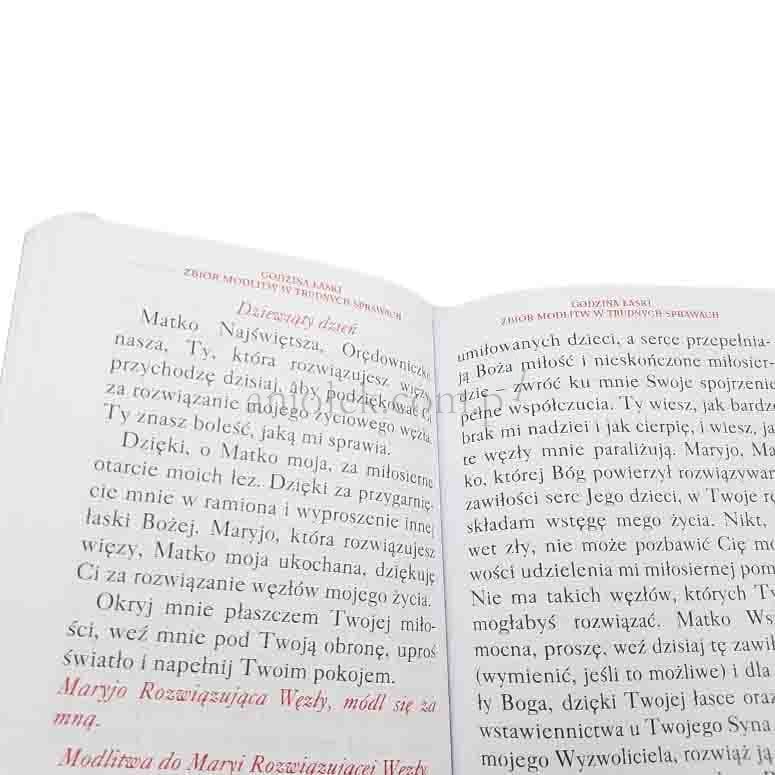 GODZINA ŁASKI
ZBIÓR MODLITW W TRUDNYCH SPRAWACH
Dziewiąty dzień
Matko Najświętsza, Orędowniczko
nasza, Ty, która rozwiązujesz węzły,
przychodzę dzisiaj, aby podziękować Ci
za rozwiązanie mojego życiowego węzła.
Ty znasz boleść, jaką mi sprawia.
Dzięki, o Matko moja, za miłosierne
otarcie moich łez. Dzięki za przygarnię-
cie mnie w ramiona i wyproszenie innej
łaski Bożej. Maryjo, która rozwiązujesz
więzy, Matko moja ukochana, dziękuję
Ci za rozwiązanie węzłów mojego życia.
Okryj mnie płaszczem Twojej miło-
ści, weź mnie pod Twoją obronę, uproś
światło i napełnij Twoim pokojem.
Maryjo Rozwiązująca Węzły, módl się za
mną.
Modlitwa do Maryi Rozwiązującej Węzły
GODZINA ŁASKI
ZBIÓR MODLITW W TRUDNYCH SPRAWACH
umiłowanych dzieci, a serce przepełnia-
ją Boża miłość i nieskończone miłosier-
dzie – zwróć ku mnie Swoje spojrzenie
pełne współczucia. Ty wiesz, jak bardz
brak mi nadziei i jak cierpię, i wiesz, ja
te węzły mnie paraliżują. Maryjo, Ma
ko, której Bóg powierzył rozwiązywan
zawiłości serc Jego dzieci, w Twoje rę
składam wstęgę mego życia. Nikt,
wet zły, nie może pozbawić Cię mo
wości udzielenia mi miłosiernej pom
Nie ma takich węzłów, których Ty
mogłabyś rozwiązać. Matko Ws
mocna, proszę, weź dzisiaj tę zawił
(wymienić, jeśli to możliwe) i dla
ły Boga, dzięki Twojej łasce oraz
wstawiennictwa u Twojego Syna
mojego Wyzwoliciela, rozwiąż ją
aniolek.com.pl